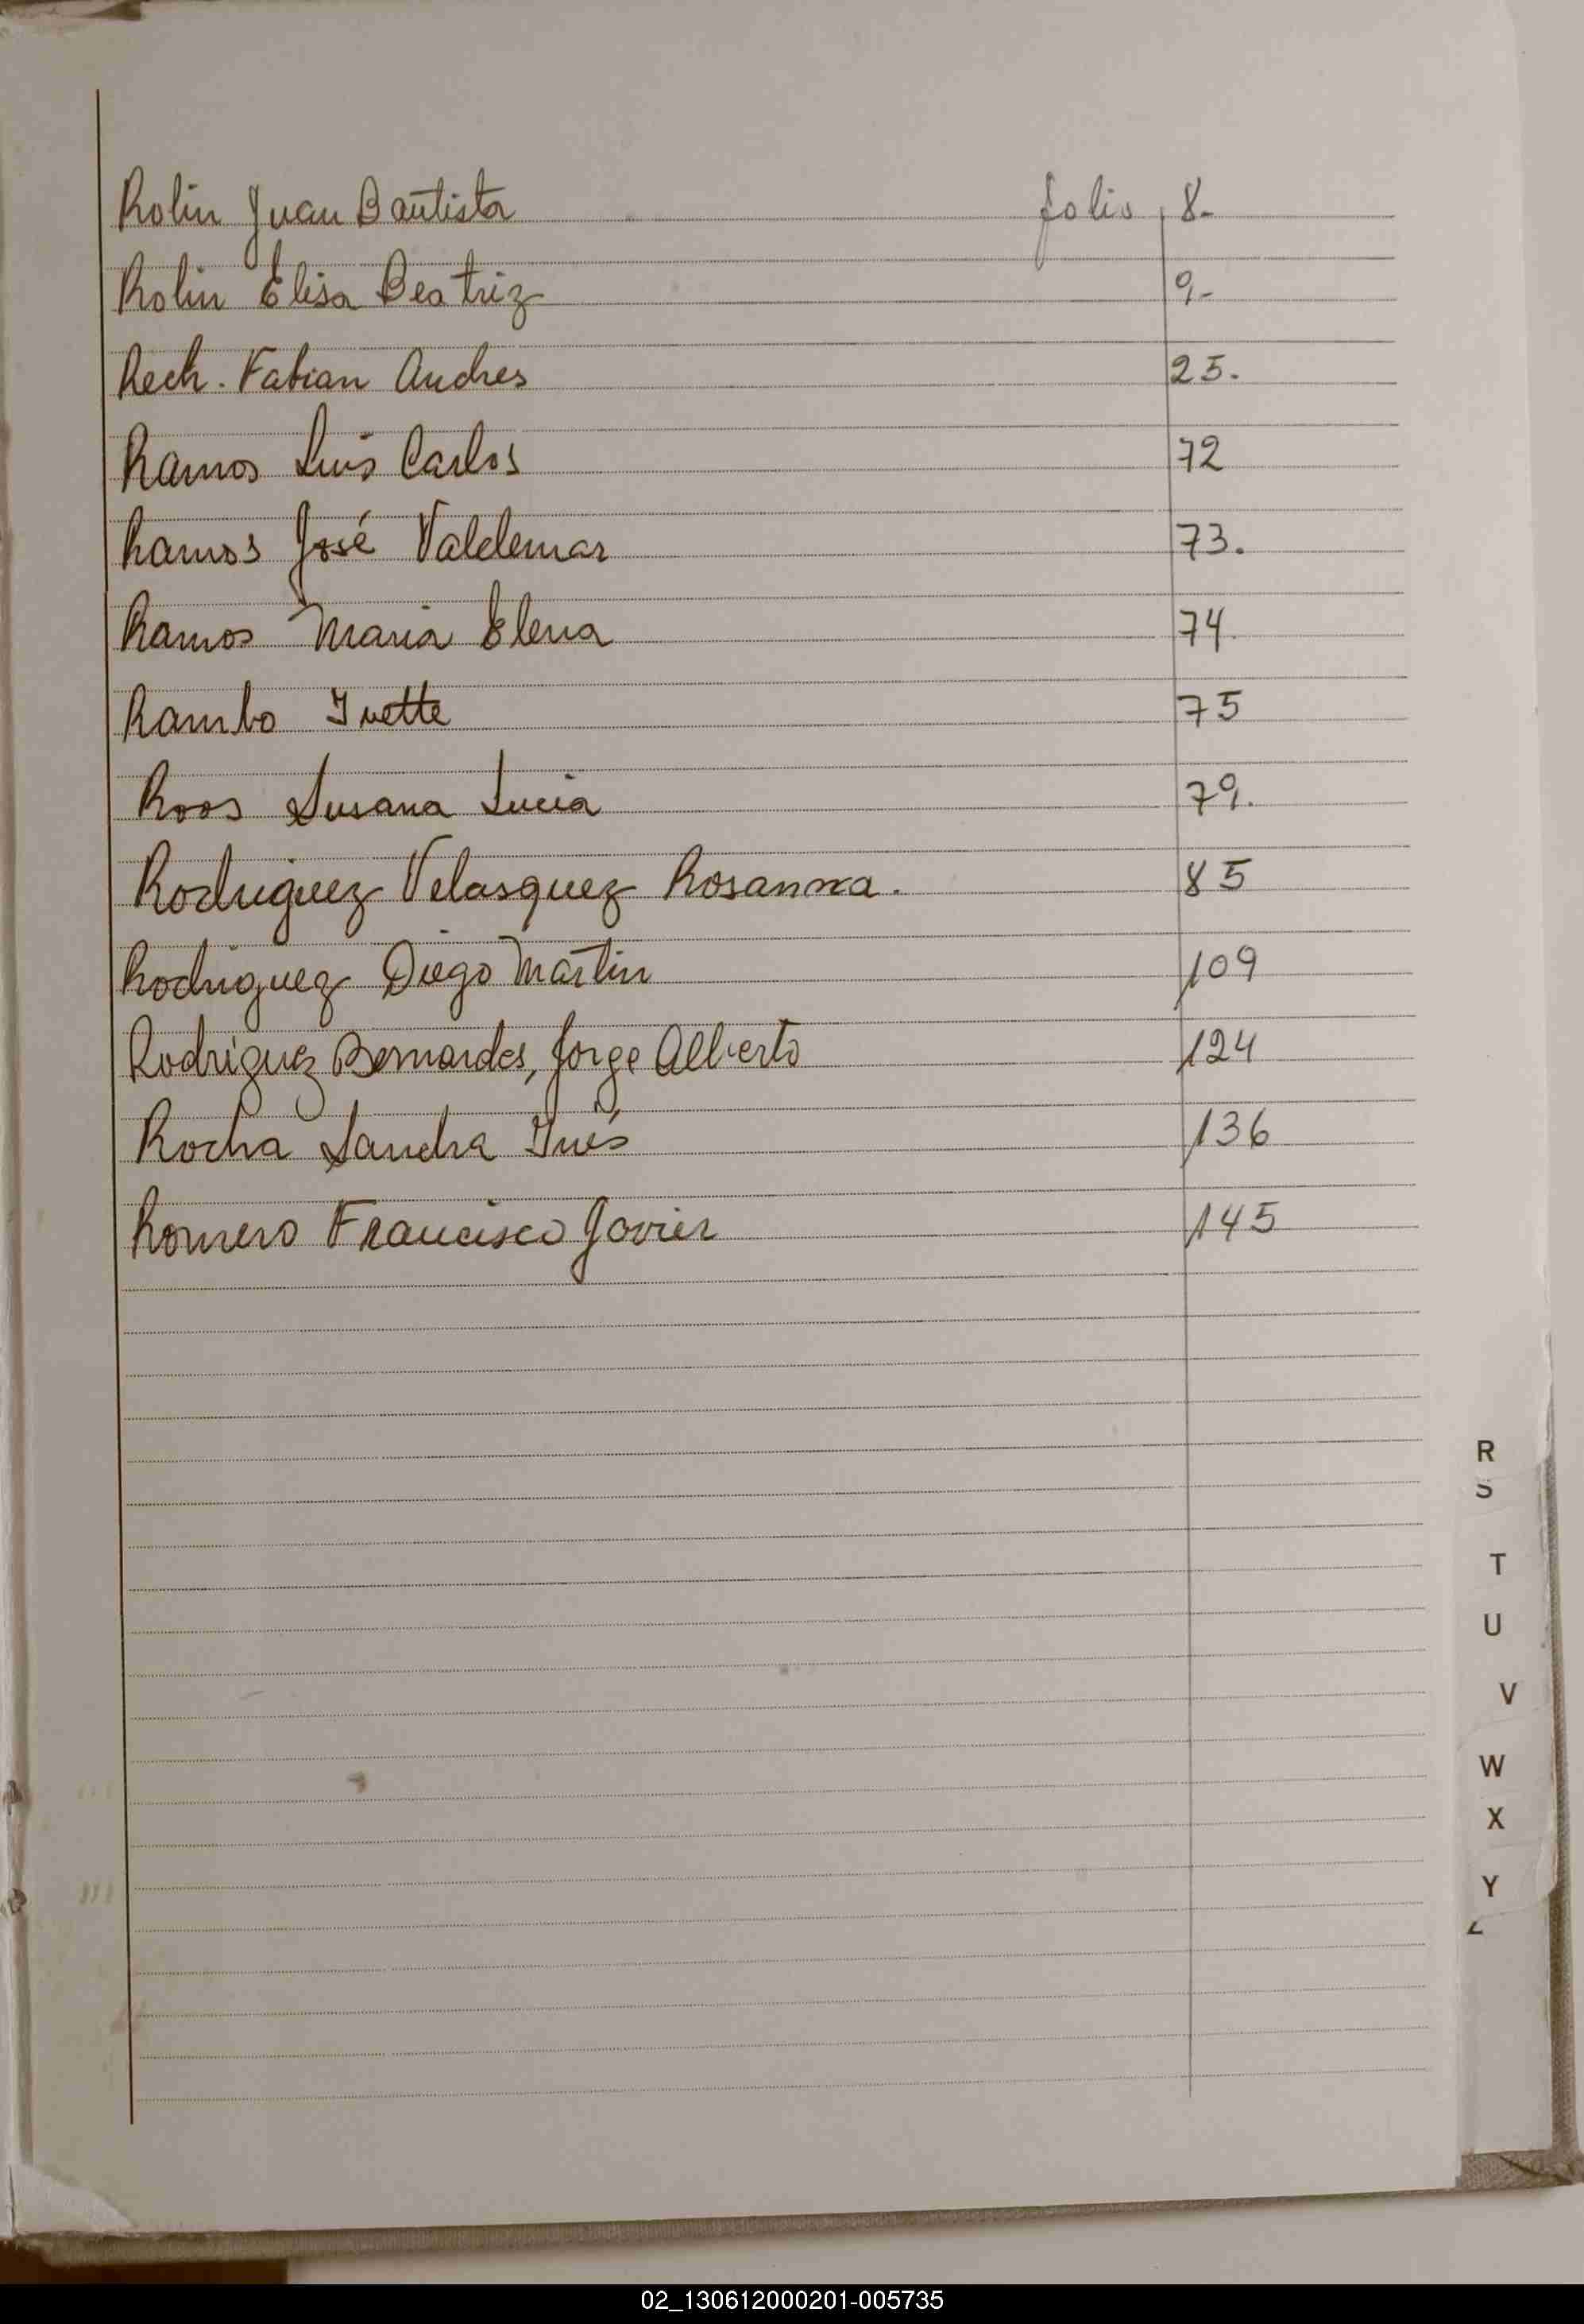 Rolin Juan Bautista folio 8-
Rolin Elisa Beatriz 9-
Rech. Fabian Andres 25.
Ramos Luis Carlos 72
Ramos José Valdemar 73.
Ramos Maria Elena 74.
Rambo Ivette 75
Roos Susana Lucia 79.
Rodriguez Velasquez Rosanna. 85
Rodriguez Diego Martin 109
Rodriguez Bernardes, Jorge Alberto 124
Rocha Sandra Inés 136
Romero Francisco Javier 145
R
S
T
U
V
W
X
Y
Z
02_130612000201-005735